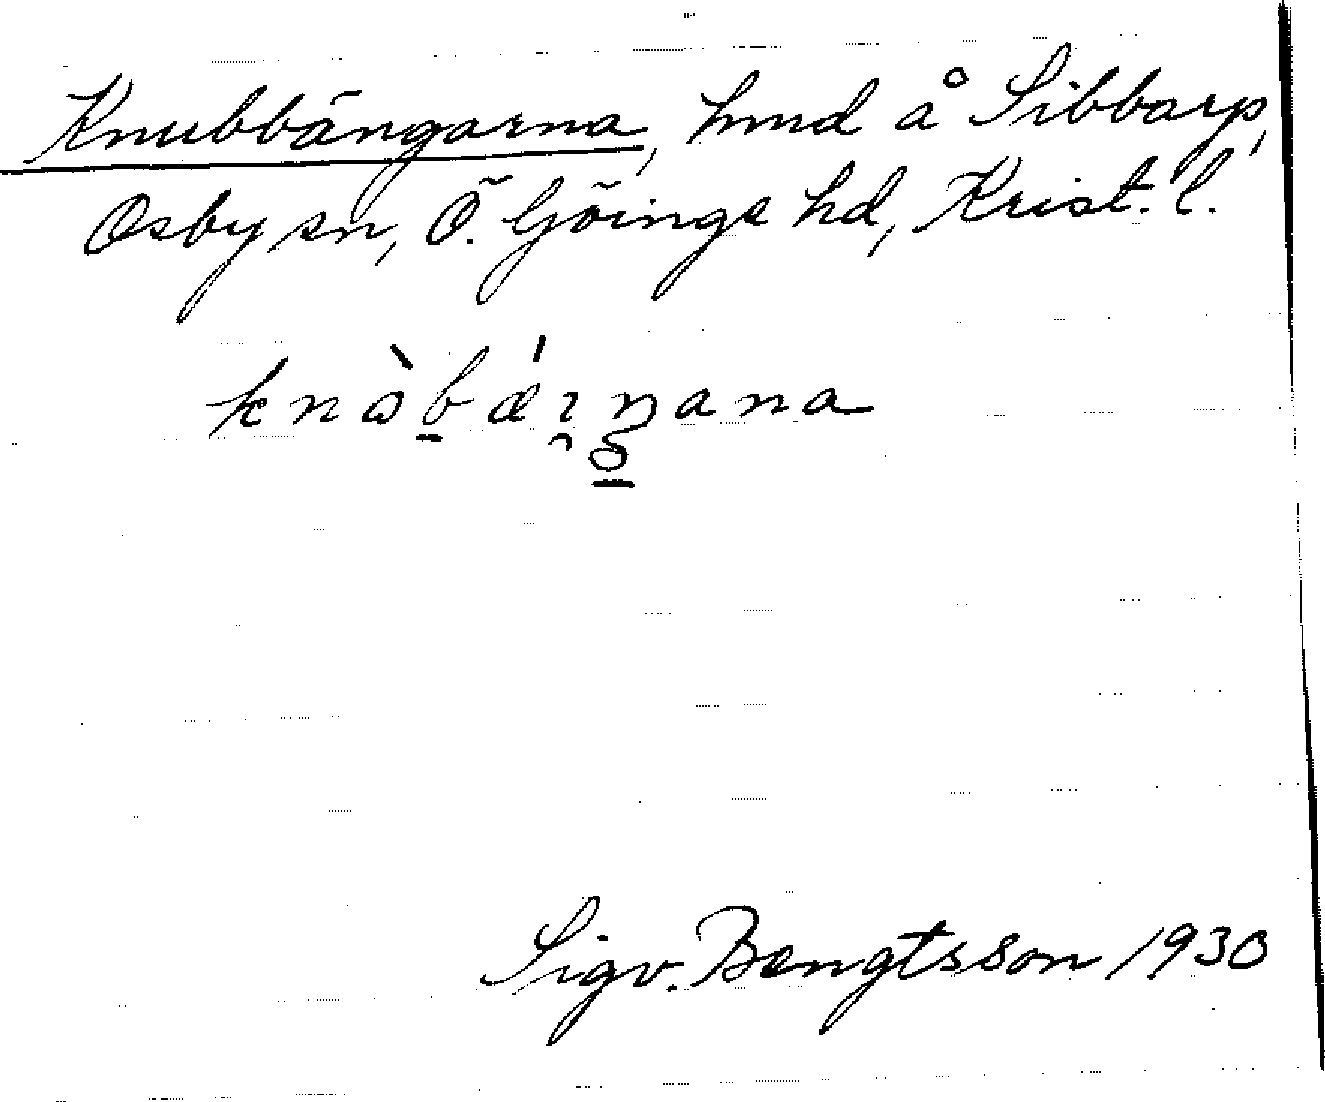 Knubbängarna, hmd å Sibbarp,
Osby sn, Ö. Göinge hd, Krist. l.
knɷ̀b̠ǽɪ̯ŋ̠ana
Sigv. Bengtsson 1930